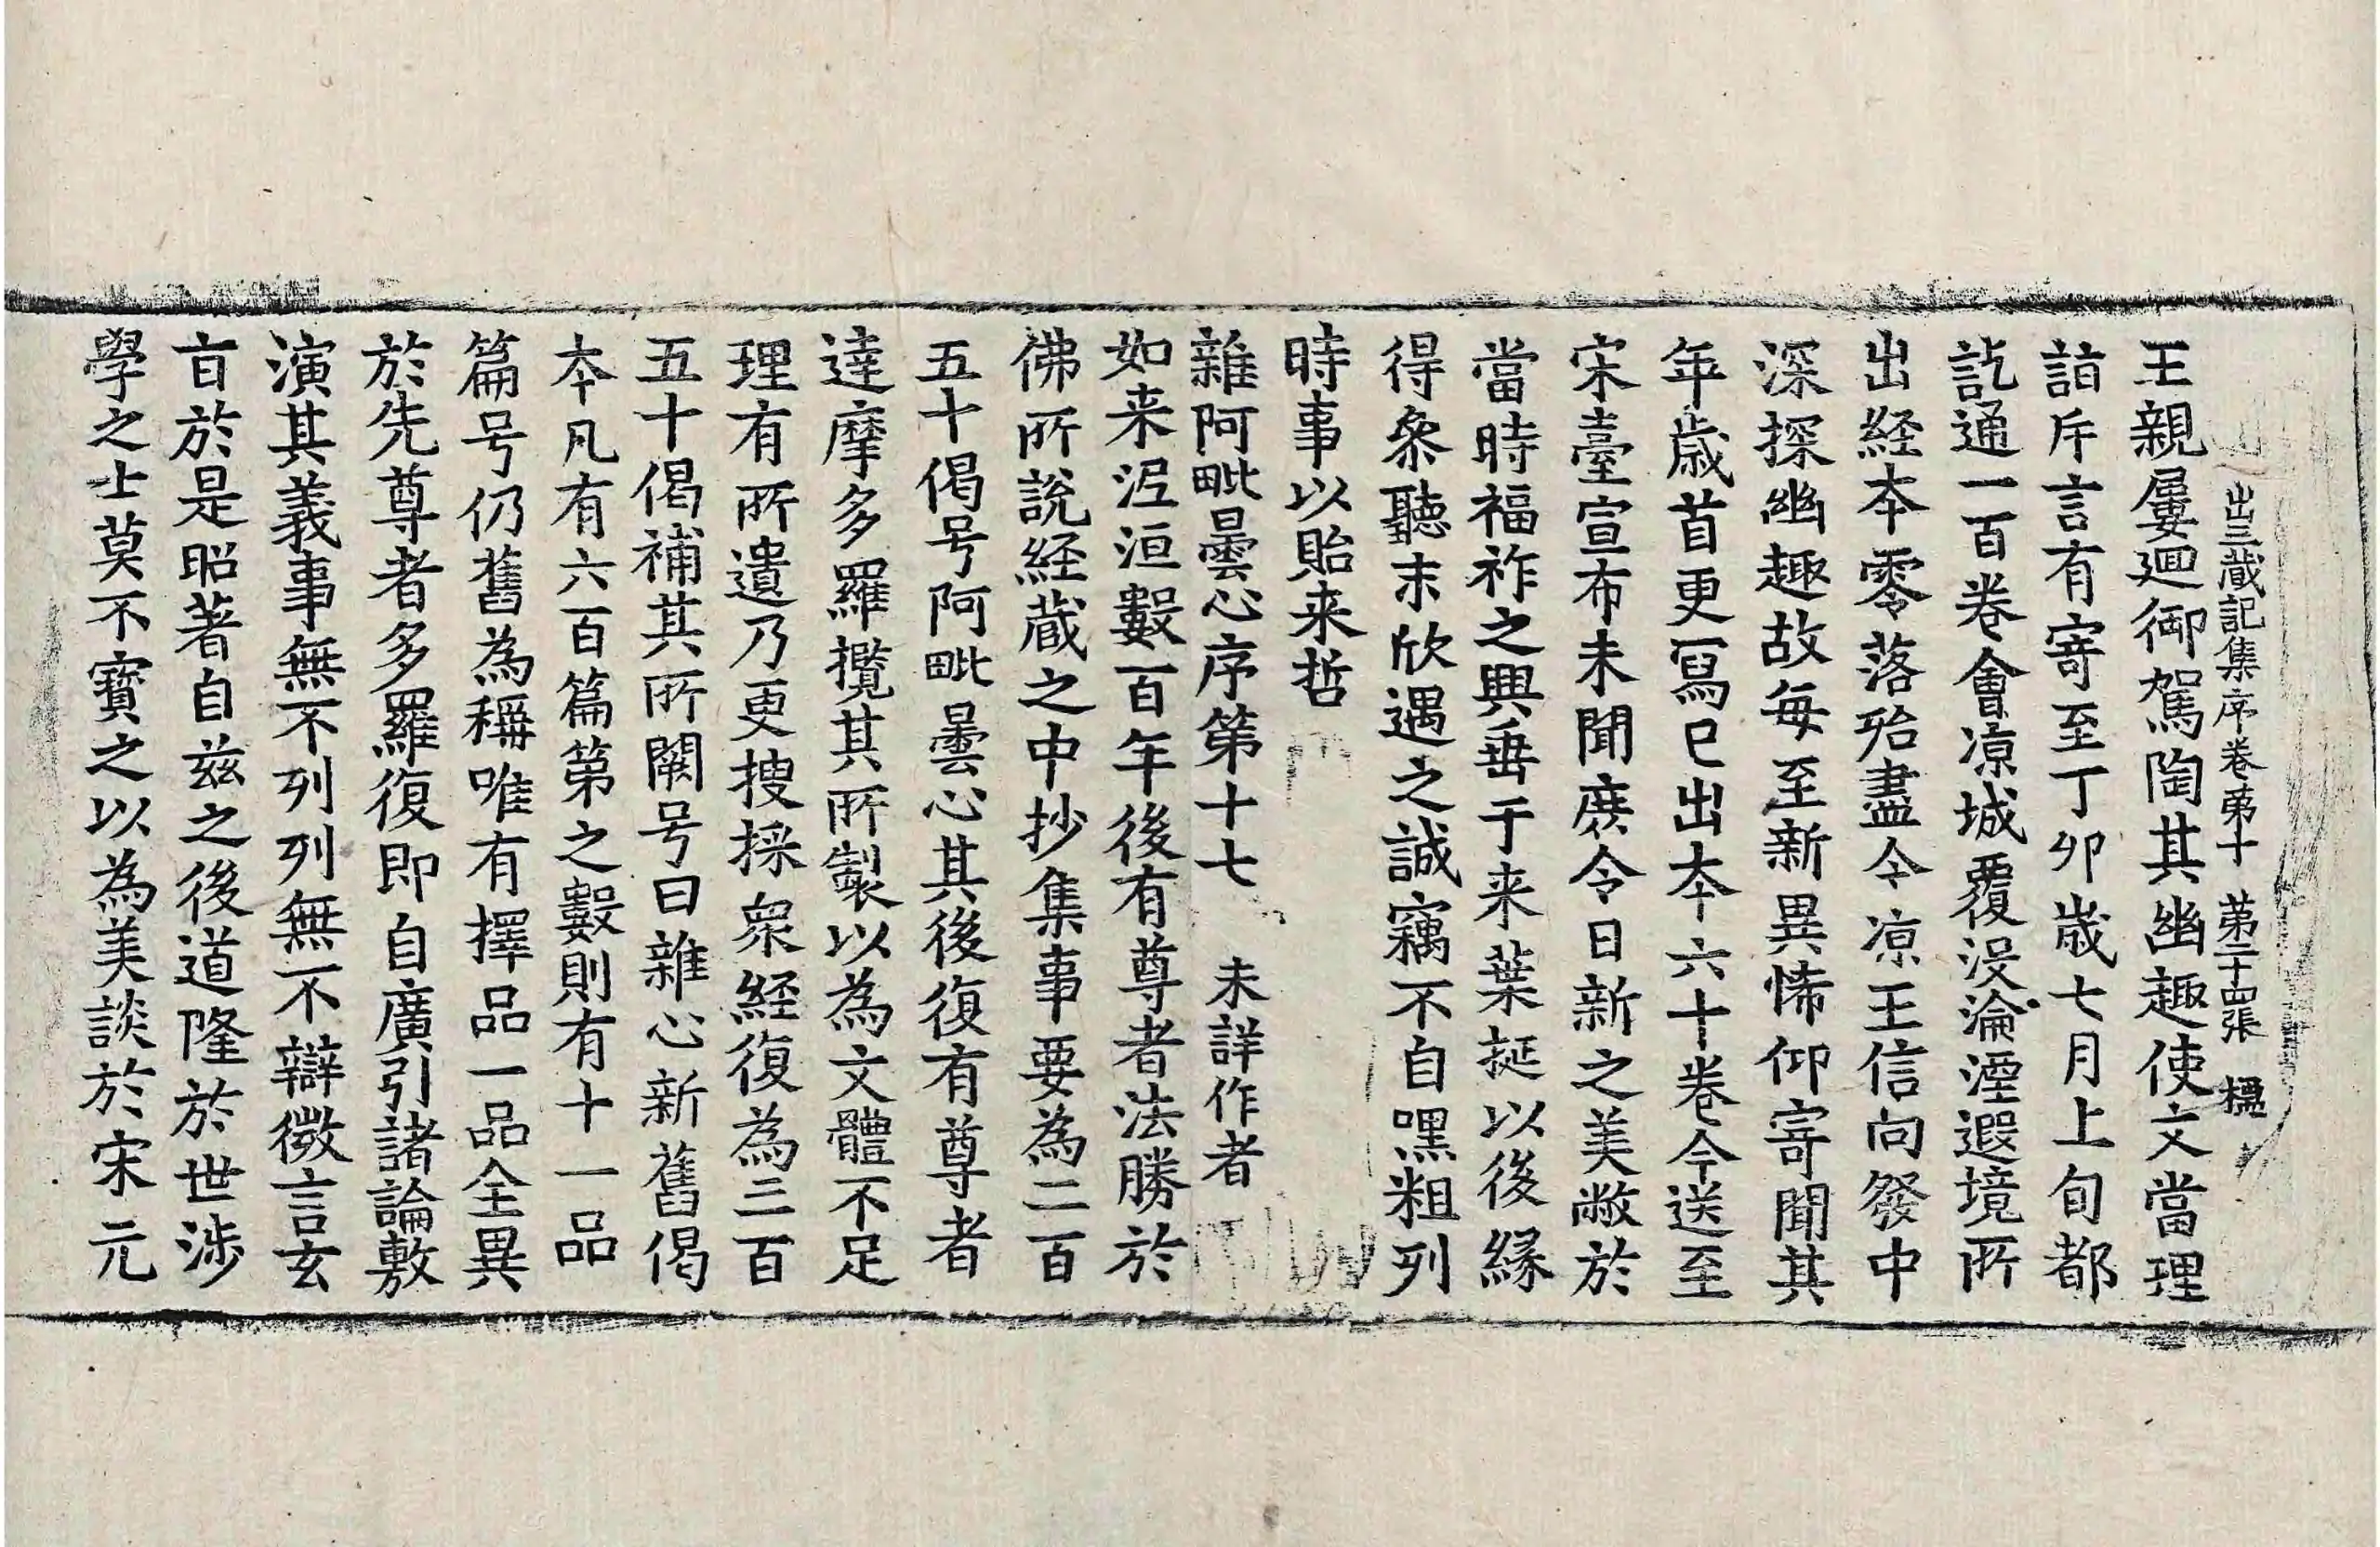 出三藏記集序卷第十 第二十四張 楹
王親屢迴御駕陶其幽趣使文當理
詣斥言有寄至丁卯歲七月上旬都
訖通一百卷會涼城覆没淪湮遐境所
出経本零落殆盡今涼王信向發中
深探幽趣故每至新異悕仰寄聞其
年歲首更寫已出本六十卷令送至
宋臺宣布未聞庶令日新之美敞於
當時福祚之興垂于来葉挻以後緣
得叅聽末欣遇之誠竊不自嘿粗列
時事以貽来哲
雜阿毗曇心序第十七 未詳作者
如来泥洹數百年後有尊者法勝於
佛所說経藏之中抄集事要為二百
五十偈号阿毗曇心其後復有尊者
達摩多羅攬其所製以為文體不足
理有所遺乃更搜採衆経復為三百
五十偈補其所闕号曰雜心新舊偈
本凡有六百篇第之數則有十一品
篇号仍舊為稱唯有擇品一品全異
於先尊者多羅復即自廣引諸論敷
演其義事無不列列無不辯微言玄
旨於是昭著自兹之後道隆於世涉
學之士莫不寶之以為美談於宋元